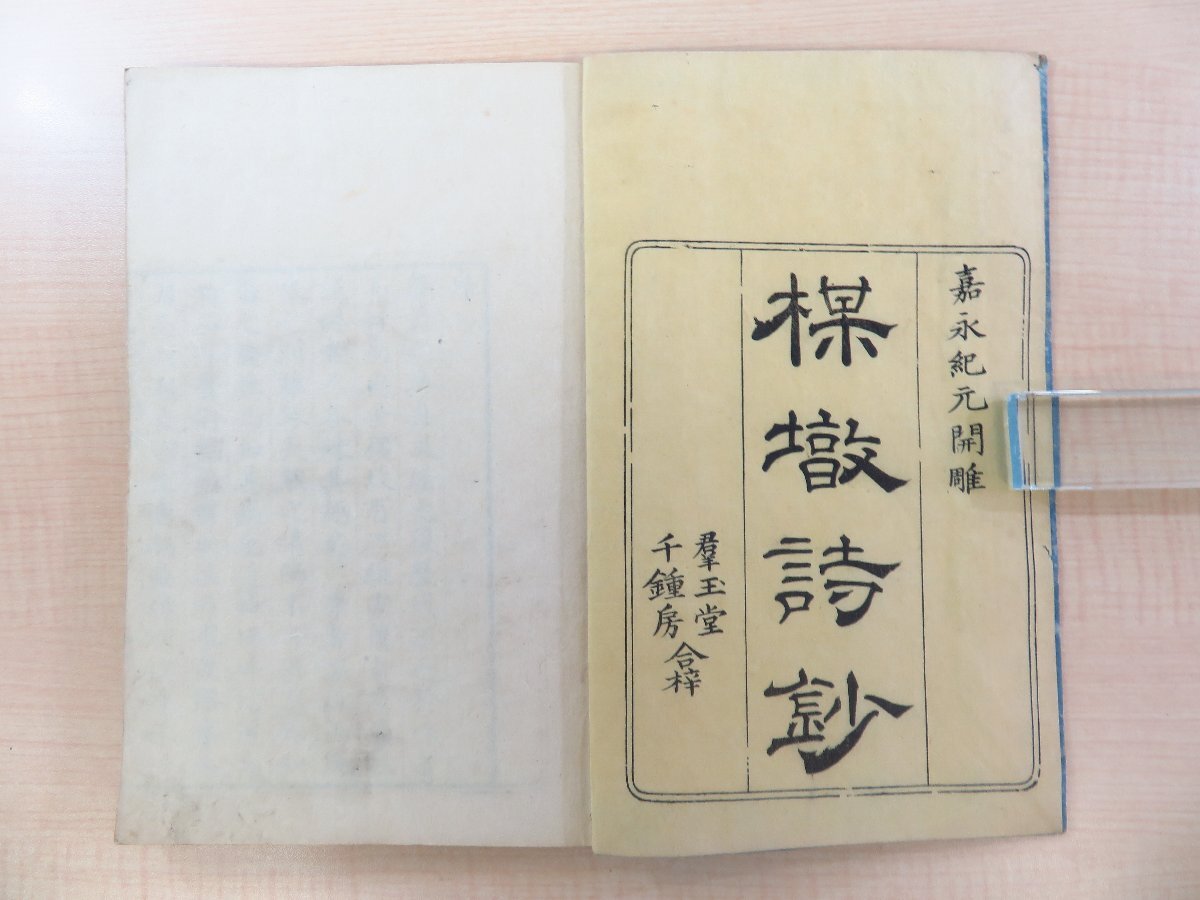 嘉永紀元開雕
楳墩詩鈔
羣玉堂
千鍾房
合梓